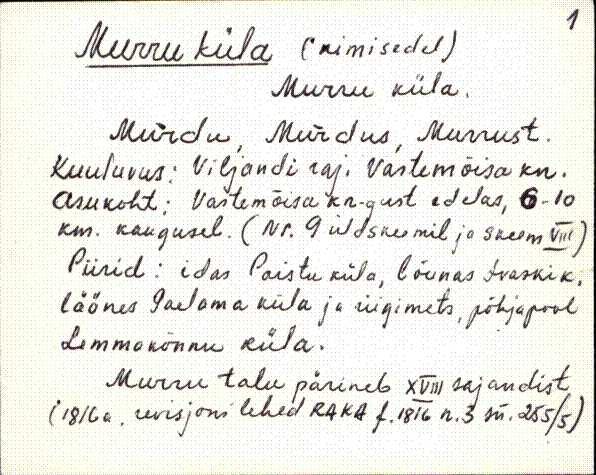 1
Murru küla (nimisedel)
Murru küla.
Murdu, Murdus, Murrust.
Kuuluvus: Viljandi raj. Vastemõisa kn.
Asukoht: Vastemõisa kn-gust edelas, 6-10
km. kaugusel. (Nr. 9 üldskeemil ja skeem VIII)
Piirid: idas Paistu küla, lõunas Ivaski k.
läänes Gaelama küla ja riigimets, põhjapool
Lemmakõnnu küla.
Murru talu pärineb XVIII sajandist
(1816a. revisjoni lehed RAKA f. 1816 n. 3 sü. 255/5)